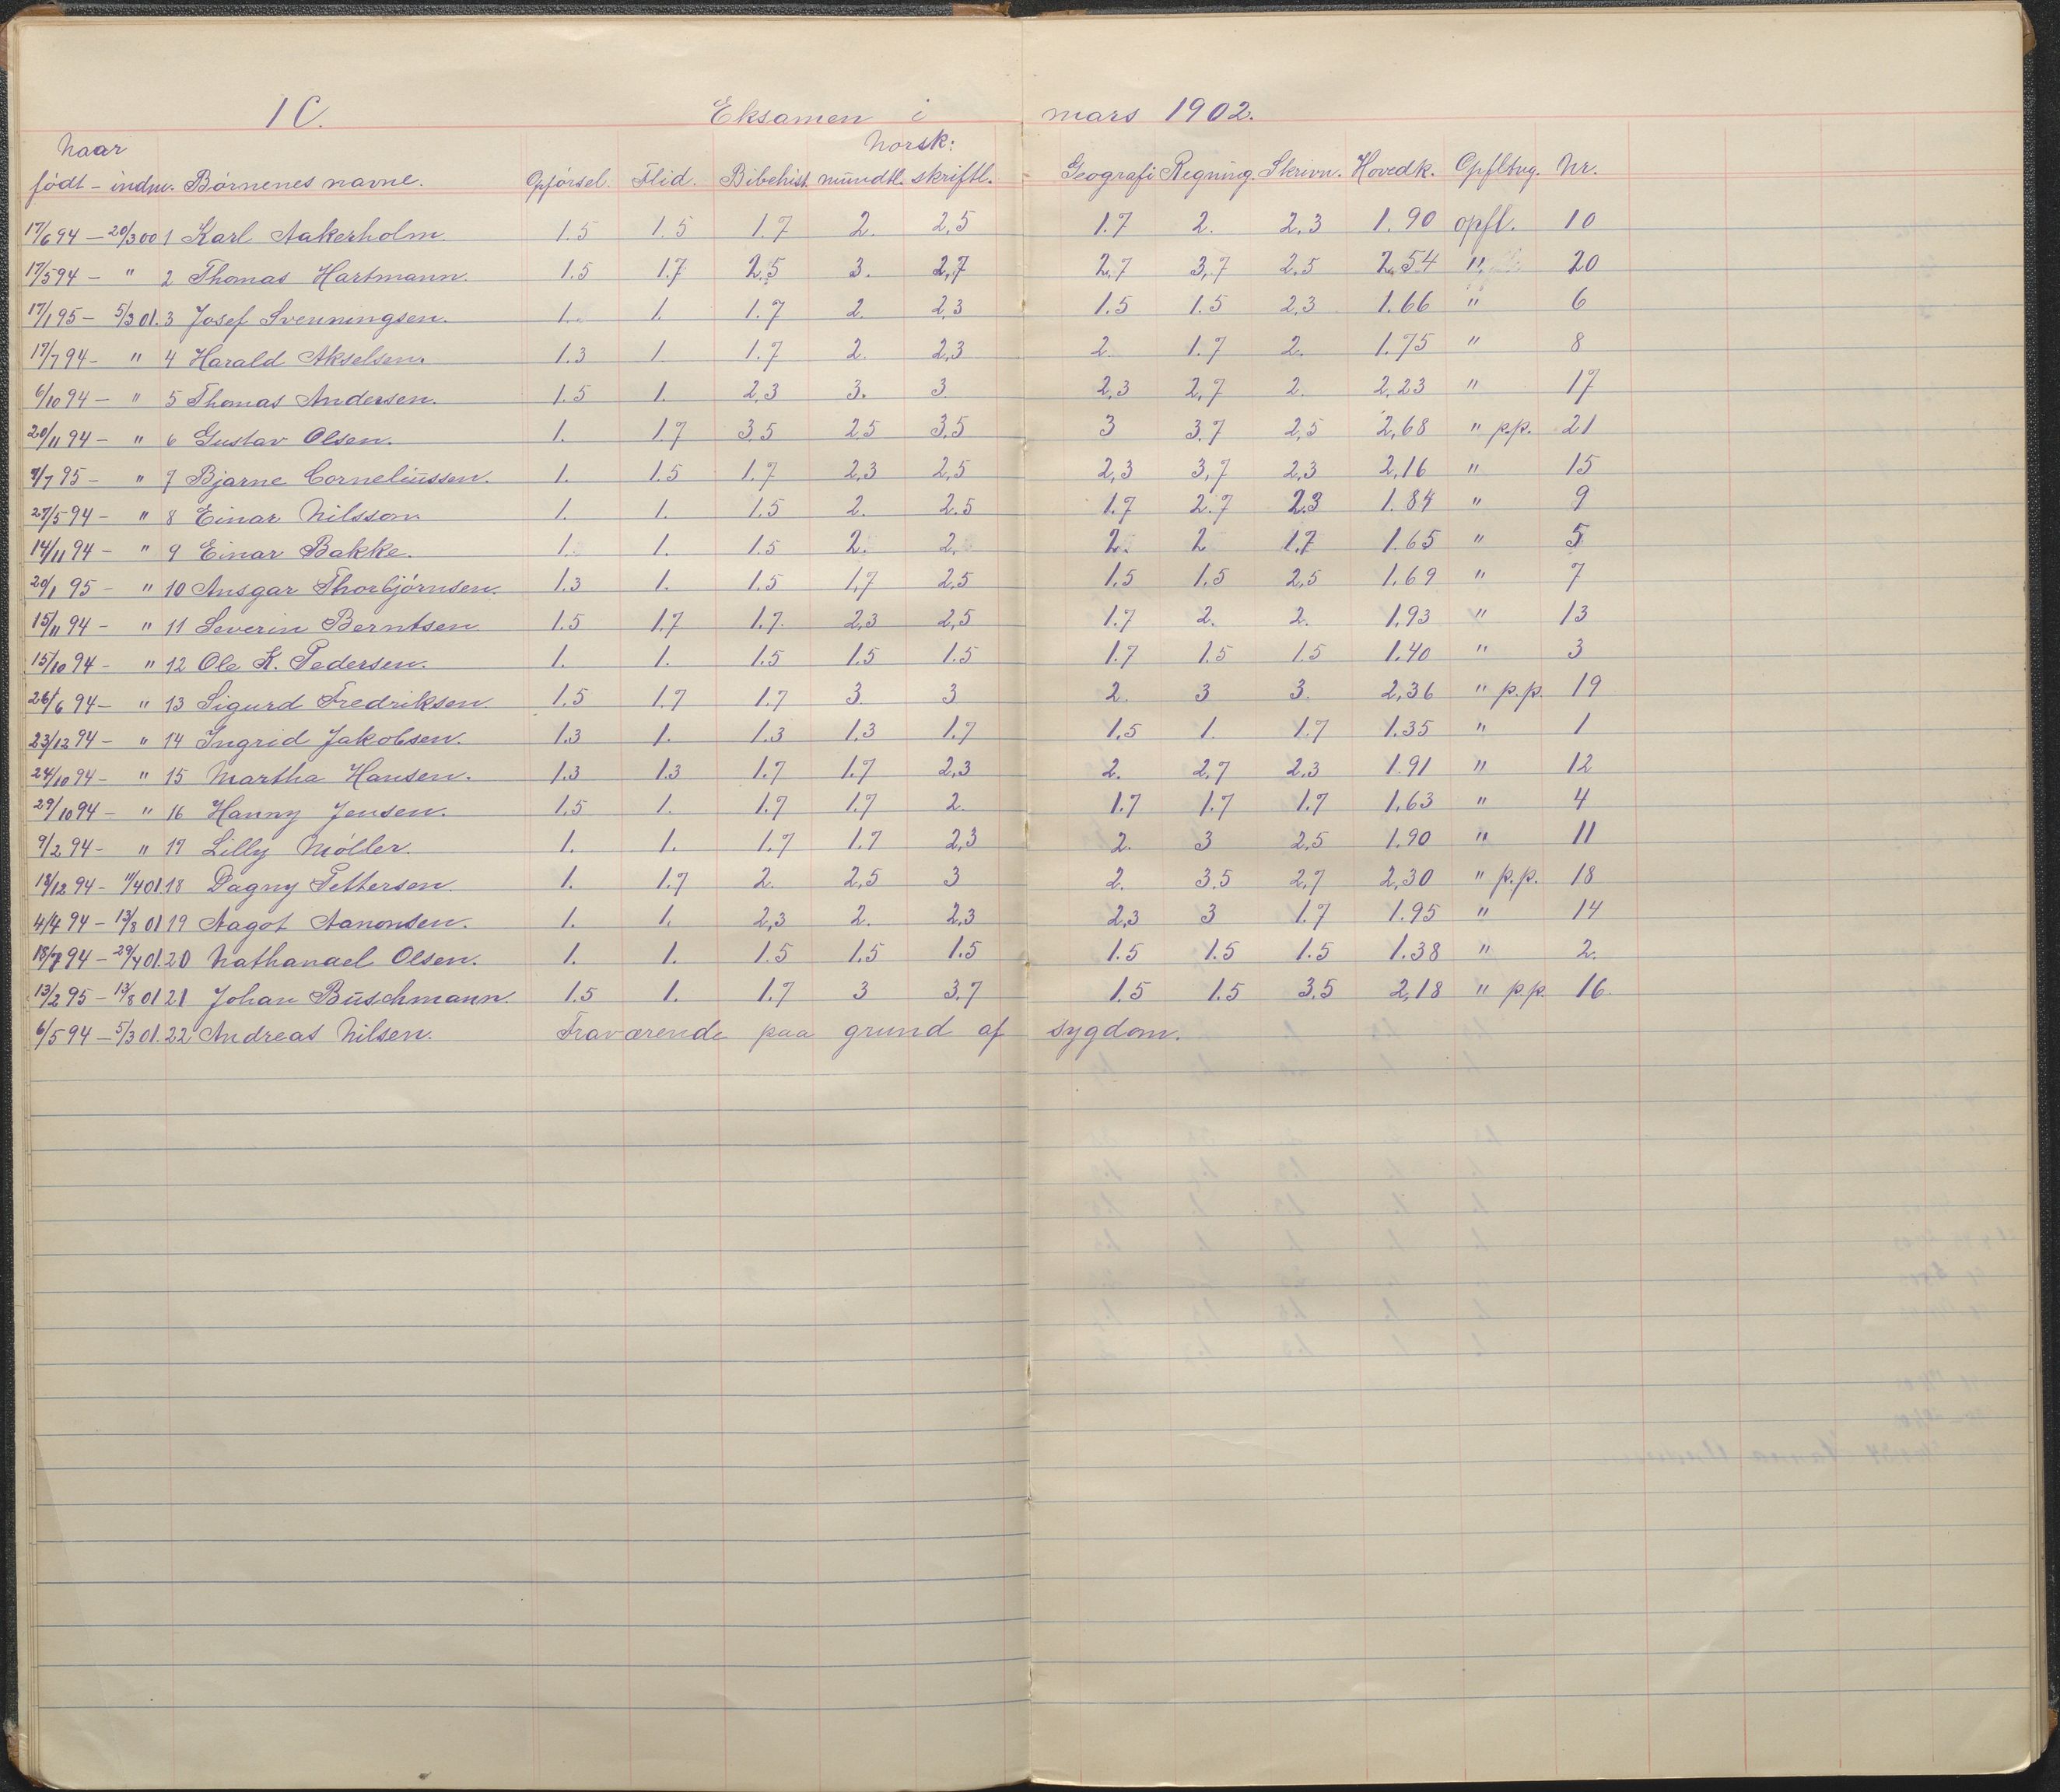 1 C. Eksamen i mars 1902.
Naar Norsk:
födt - indm. Börnenes navne. Opförsel. Flid. Bibelhist. mündtl. skriftl. Geografi Regning. Skrivn. Hovedk. Opfltng. Nr.
17/6 94 - 20/3 00 1 Karl Aakerholm. 1.5 1.5 1.7 2. 2,5 1.7 2. 2,3 1.90 opfl. 10
17/5 94 - " 2 Thomas Hartmann. 1.5 1.7 2,5 3. 2,7 2,7 3,7 2.5 2.54 " 20
17/1 95 - 5/3 01. 3 Josef Svenningsen. 1. 1. 1.7 2. 2,3 1.5 1.5 2,3 1.66 " 6
17/7 94 - " 4 Harald Akselsen. 1.3 1. 1.7 2. 2,3 2. 1.7 2. 1.75 " 8
6/10 94 - " 5 Thomas Andersen. 1.5 1. 2,3 3. 3 2,3 2,7 2. 2,23 " 17
20/11 94 - " 6 Gustav Olsen. 1. 1.7 3.5 2.5 3.5 3 3.7 2,5 2,68 " p.p. 21
7/7 95 - " 7 Bjarne Corneliüssen. 1. 1.5 1.7 2,3 2,5 2,3 3,7 2,3 2,16 " 15
27/5 94 - " 8 Einar Nilsson 1. 1. 1.5 2. 2.5 1.7 2.7 2.3 1.84 " 9
14/11 94 - " 9 Einar Bakke. 1. 1. 1.5 2. 2. 2. 2 1.7 1.65 " 5
20/1 95 - " 10 Ansgar Thorbjörnsen. 1.3 1. 1.5 1,7 2,5 1.5 1.5 2,5 1.69 " 7
15/11 94 - " 11 Severin Berntsen 1.5 1.7 1.7 2,3 2,5 1.7 2. 2. 1,93 " 13
15/10 94 - " 12 Ole K. Pedersen. 1. 1. 1.5 1.5 1.5 1.7 1.5 1.5 1.40 " 3
26/6 94 - " 13 Sigurd Fredriksen 1.5 1.7 1.7 3 3 2. 3 3. 2,36 " p.p. 19
23/12 94 - " 14 Ingrid Jakobsen. 1.3 1. 1.3 1.3 1.7 1.5 1. 1.7 1.35 " 1
24/10 94 - " 15 Martha Hansen. 1.3 1.3 1.7 1.7 2,3 2. 2,7 2.3 1.91 " 12
29/10 94 - " 16 Hanny Jensen. 1.5 1. 1.7 1.7 2. 1.7 1.7 1.7 1,63 " 4
9/2 94 - " 17 Lilly Möller. 1. 1. 1.7 1.7 2,3 2. 3 2,5 1.90 " 11
18/12 94 - 11/4 01 18 Dagny Pettersen. 1. 1.7 2. 2,5 3 2. 3.5 2,7 2,30 " p.p. 18
4/4 94 - 13/8 01 19 Aagot Aanonsen. 1. 1. 2,3 2. 2,3 2,3 3 1.7 1.95 " 14
18/7 94 - 29/4 01. 20 Nathanael Olsen. 1. 1. 1.5 1.5 1.5 1.5 1.5 1.5 1.38 " 2.
13/2 95 - 13/8 01 21 Johan Büschmann. 1.5 1. 1.7 3 3.7 1.5 1.5 3.5 2,18 " p.p. 16
6/5 94 - 5/3 01. 22 Andreas Nilsen. Fraværende paa grund af sygdom.